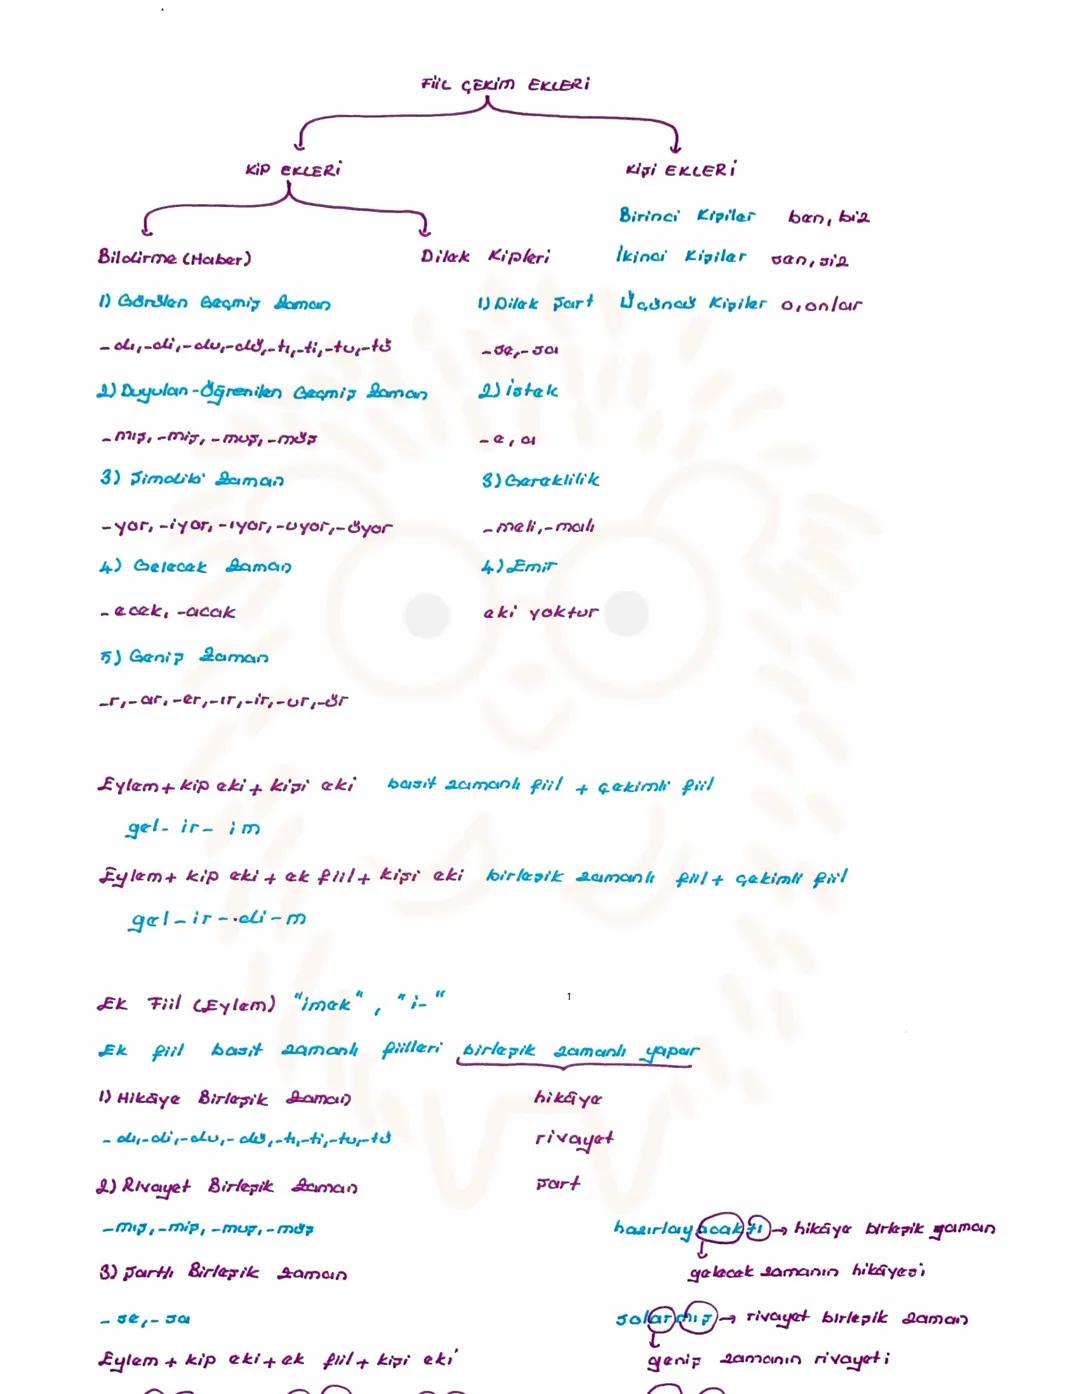 FİİL ÇEKİM EKLERİ
KİP EKLERİ
KİŞİ EKLERİ
Birinci Kişiler ben, biz
Bildirme (Haber)
Dilek Kipleri
İkinci Kişiler sen, siz
1) Görülen Geçmiş Zaman
1) Dilek Şart
Üçüncü Kişiler o, onlar
-dı,-di,-du,-dü,-tı,-ti,-tu,-tü
-se,-sa
2) Duyulan-Öğrenilen Geçmiş Zaman
2) İstek
-mış, -miş, -muş, -müş
-e, a
3) Şimdiki Zaman
3) Gereklilik
-yor, -iyor, -ıyor, -uyor, -üyor
-meli,-malı
4) Gelecek Zaman
4) Emir
-ecek, -acak
eki yoktur
5) Geniş Zaman
-r,-ar,-er,-ır,-ir,-ur,-ür
Eylem + kip eki + kişi eki basit zamanlı fiil + çekimli fiil
gel- ir- im
Eylem + kip eki + ek fiil + kişi eki birleşik zamanlı fiil + çekimli fiil
gel-ir-di-m
Ek Fiil (Eylem) "imek", "i-"
1
Ek fiil basit zamanlı fiilleri birleşik zamanlı yapar
1) Hikâye Birleşik Zaman
hikâye
-dı,-di,-du,-dü,-tı,-ti,-tu,-tü
rivayet
2) Rivayet Birleşik Zaman
şart
-mış,-miş,-muş,-müş
hazırlayacaktı → hikâye birleşik zaman
3) Şartlı Birleşik Zaman
gelecek zamanın hikâyesi
-se,-sa
solarmış → rivayet birleşik zaman
Eylem + kip eki + ek fiil + kişi eki
geniş zamanın rivayeti